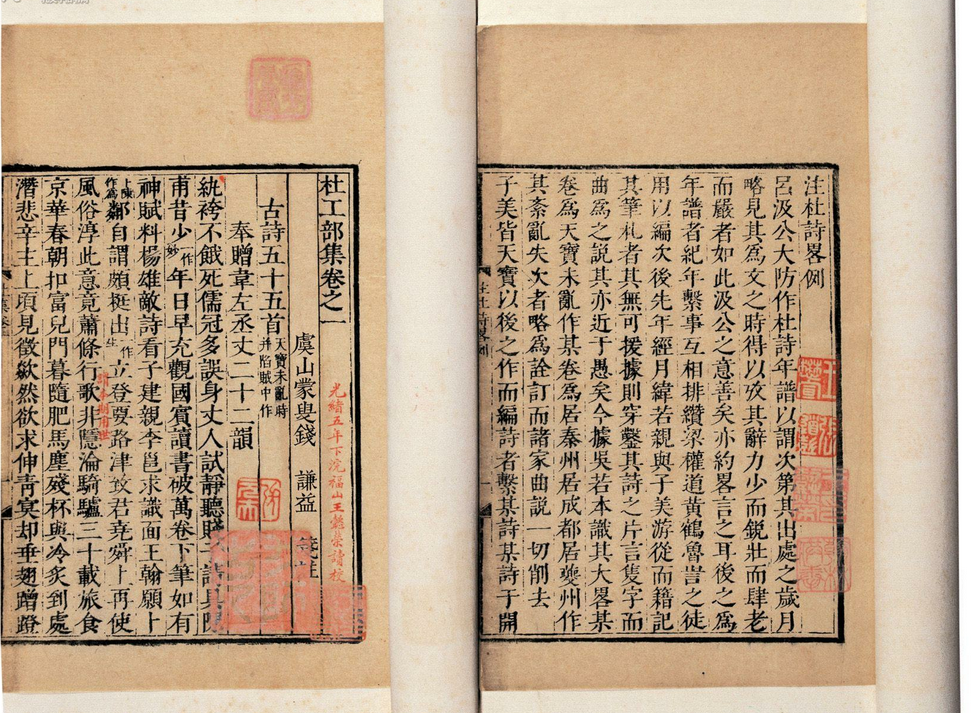 注杜詩畧例
呂汲公大防作杜詩年譜以謂次第其出處之歲月
略見其爲文之時得以攷其辭力少而銳壯而肆老
而嚴者如此汲公之意善矣亦約畧言之耳後之爲
年譜者紀年繫事互相排纘梁權道黃鶴魯訔之徒
用以編次後先年經月緯若親與子美游從而籍記
其筆札者其無可援據則穿鑿其詩之片言隻字而
曲爲之說其亦近于愚矣今據吳若本識其大畧某
卷爲天寶未亂作某卷爲居秦州居成都居夔州作
其紊亂失次者略爲詮訂而諸家曲說一切削去
子美皆天寶以後之作而編詩者繫某詩某詩于開
杜工部集卷之一
虞山蒙叟錢 謙益 箋註
光緒五年下浣福山王懿榮讀校
古詩五十五首天寶未亂時并陷賊中作
奉贈韋左丞丈二十二韻
紈袴不餓死儒冠多誤身丈人試靜聽賤子請具陳
甫昔少一作妙年日早充觀國賓讀書破萬卷下筆如有
神賦料楊雄敵詩看子建親李邕求識面王翰願卜
鄰自謂頗挺出一作生立登要路津致君堯舜上再使
風俗淳此意竟蕭條行歌非隱淪騎驢三十載旅食
京華春朝扣富兒門暮隨肥馬塵殘杯與冷炙到處
潛悲辛主上頃見徵歘然欲求伸青冥却垂翅蹭蹬